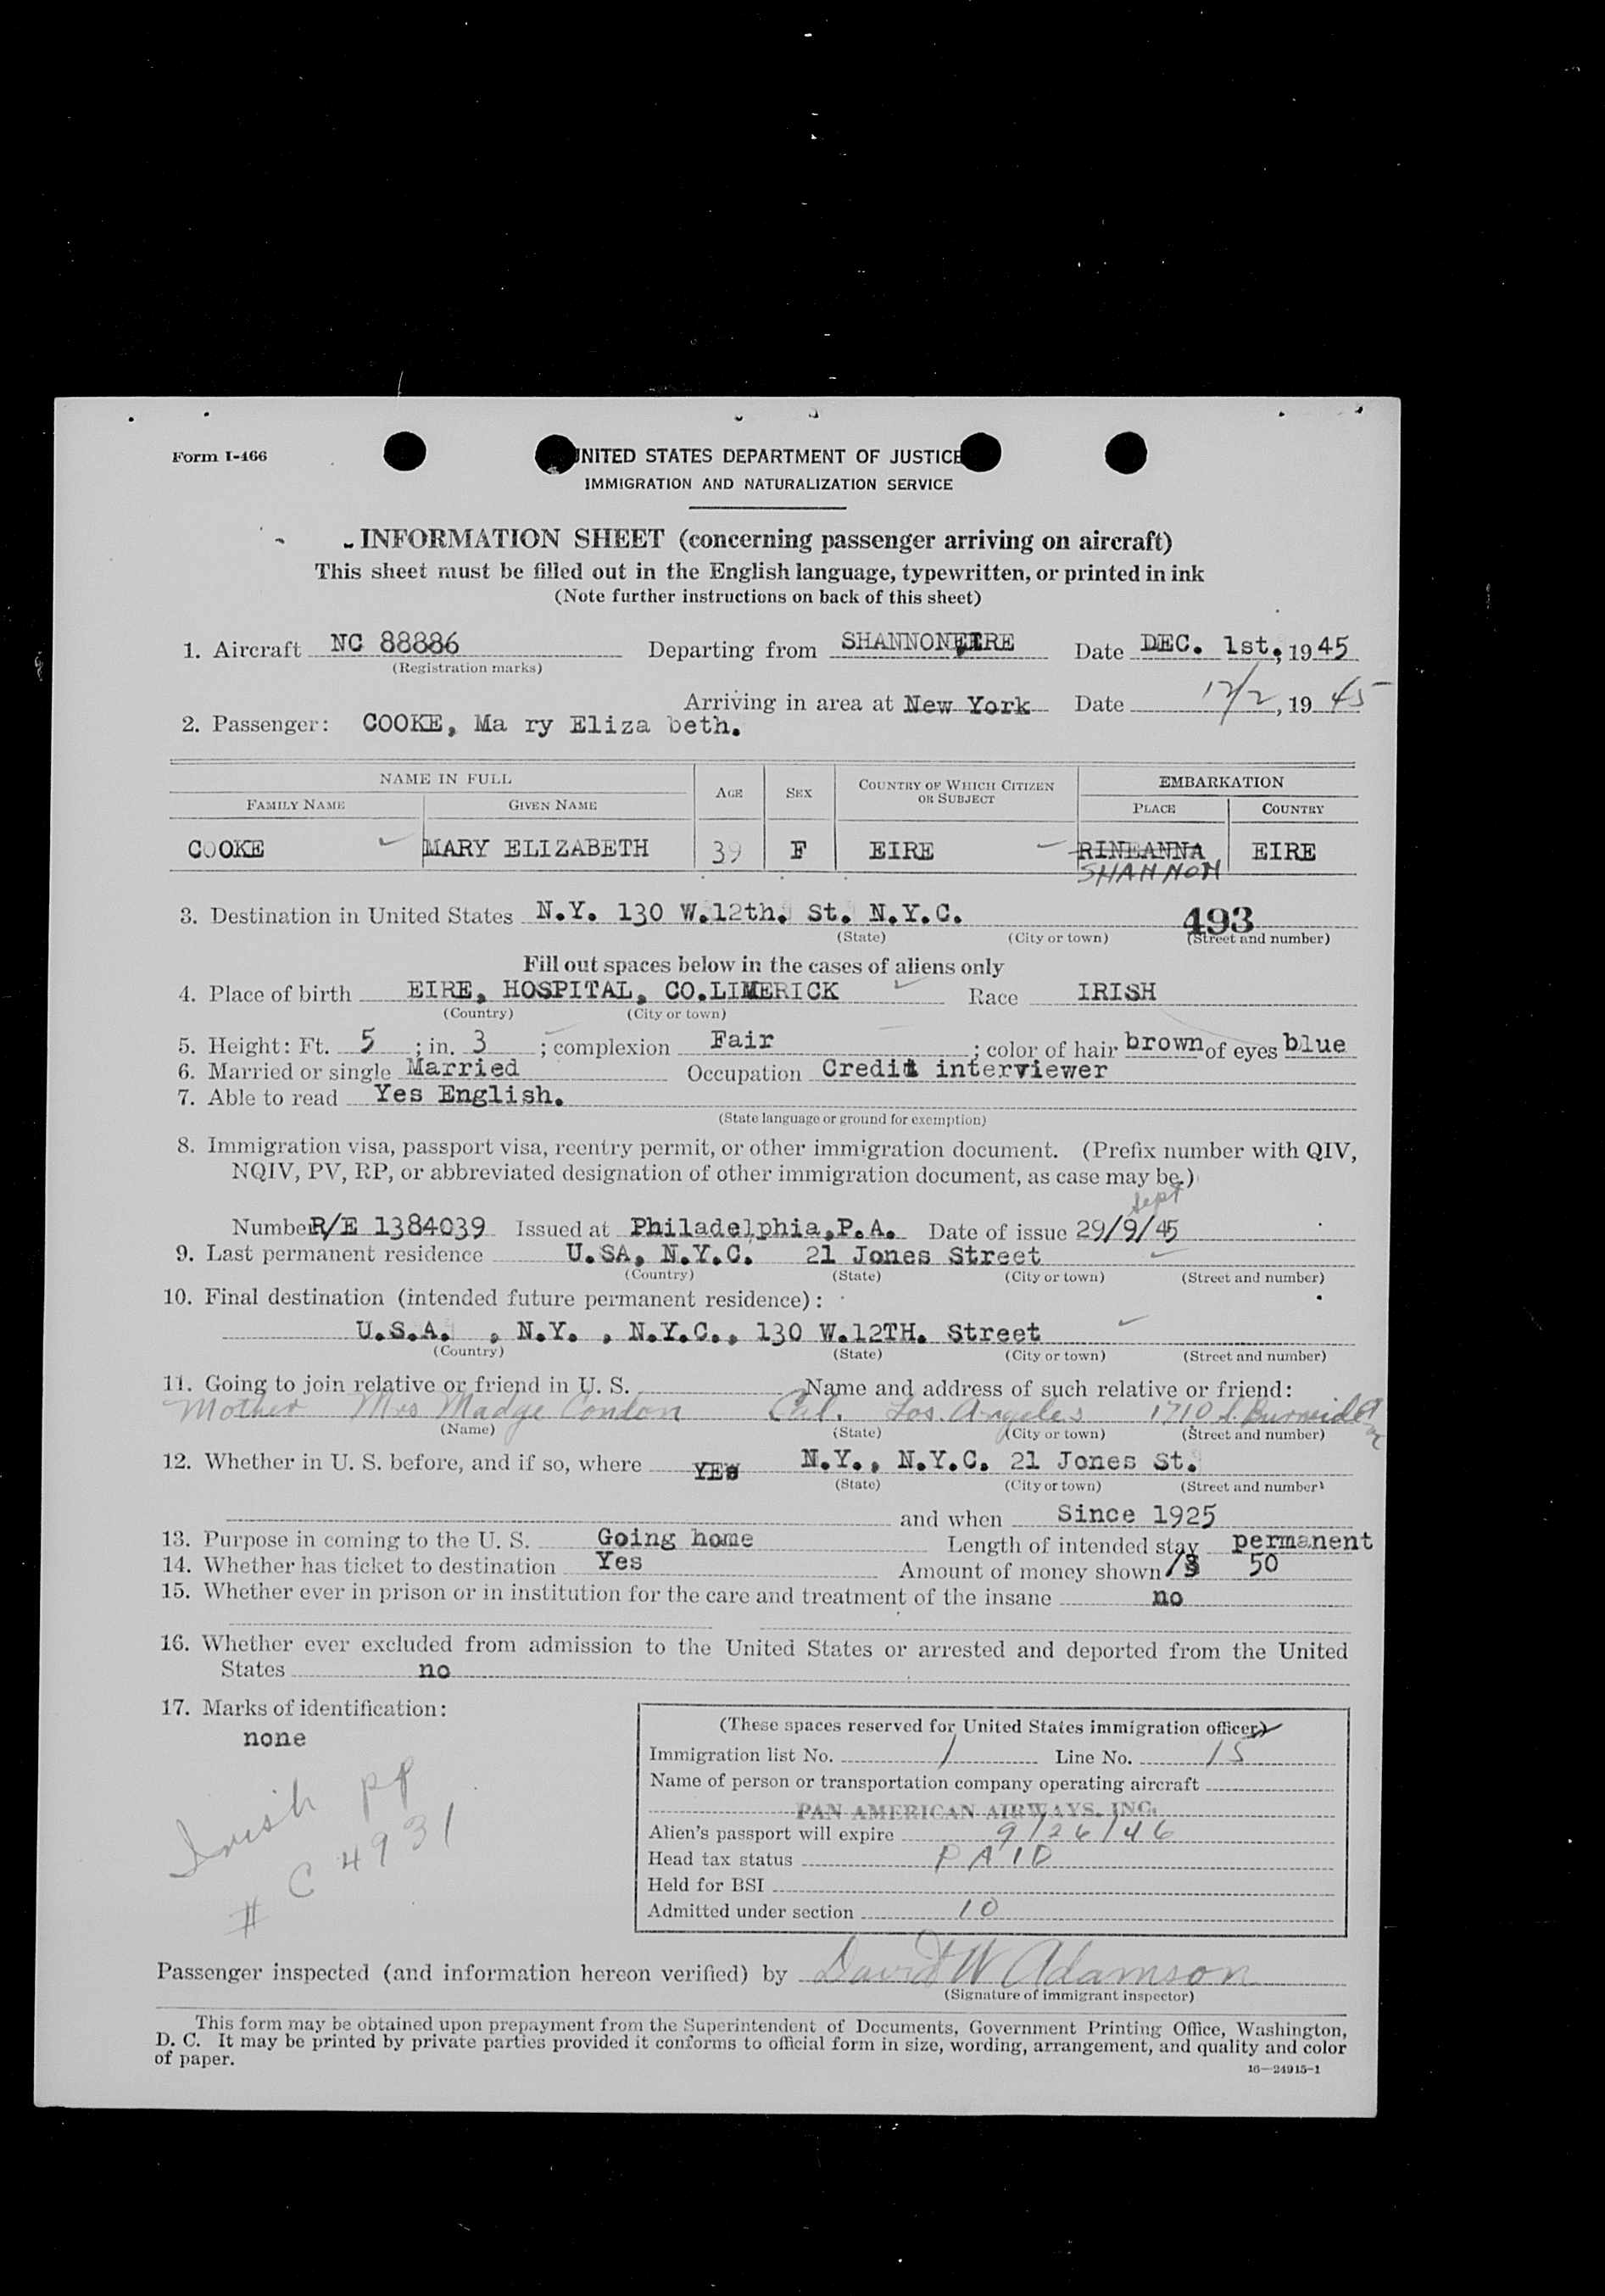 Form I-466
UNITED STATES DEPARTMENT OF JUSTICE
IMMIGRATION AND NATURALIZATION SERVICE
INFORMATION SHEET (concerning passenger arriving on aircraft)
This sheet must be filled out in the English language, typewritten, or printed in ink
(Note further instructions on back of this sheet)
1. Aircraft NC 88886 Departing from SHANNON, EIRE Date DEC. 1st, 1945
(Registration marks)
Arriving in area at New York Date 12/2, 1945
2. Passenger: COOKE, Ma ry Eliza beth.
NAME IN FULL AGE SEX COUNTRY OF WHICH CITIZEN OR SUBJECT EMBARKATION
FAMILY NAME GIVEN NAME PLACE COUNTRY
COOKE MARY ELIZABETH 39 F EIRE RINEANNA EIRE
SHANNON
3. Destination in United States N.Y. 130 W.12th. St. N.Y.C. 493
(State) (City or town) (Street and number)
Fill out spaces below in the cases of aliens only
4. Place of birth EIRE, HOSPITAL, CO.LIMERICK Race IRISH
(Country) (City or town)
5. Height: Ft. 5 ; in. 3 ; complexion Fair ; color of hair brown of eyes blue
6. Married or single Married Occupation Credit interviewer
7. Able to read Yes English.
(State language or ground for exemption)
8. Immigration visa, passport visa, reentry permit, or other immigration document. (Prefix number with QIV,
NQIV, PV, RP, or abbreviated designation of other immigration document, as case may be.)
Sept
Number R/E 1384039 Issued at Philadelphia,P.A. Date of issue 29/9/45
9. Last permanent residence U.SA, N.Y.C. 21 Jones Street
(Country) (State) (City or town) (Street and number)
10. Final destination (intended future permanent residence):
U.S.A. , N.Y. , N.Y.C., 130 W.12TH. Street
(Country) (State) (City or town) (Street and number)
11. Going to join relative or friend in U. S. Name and address of such relative or friend:
Mother Mrs Madge Condon Cal. Los Angeles 1710 S.
(Name) (State) (City or town) (Street and number)
12. Whether in U. S. before, and if so, where YES N.Y., N.Y.C. 21 Jones St.
(State) (City or town) (Street and number)
and when Since 1925
13. Purpose in coming to the U. S. Going home Length of intended stay permanent
14. Whether has ticket to destination Yes Amount of money shown $ 50
15. Whether ever in prison or in institution for the care and treatment of the insane no
16. Whether ever excluded from admission to the United States or arrested and deported from the United
States no
17. Marks of identification:
none
Irish pp
# C 4931
(These spaces reserved for United States immigration officer)
Immigration list No. 1 Line No. 15
Name of person or transportation company operating aircraft
PAN AMERICAN AIRWAYS, INC.
Alien's passport will expire 9/26/46
Head tax status PAID
Held for BSI
Admitted under section 10
Passenger inspected (and information hereon verified) by David W Adamson
(Signature of immigrant inspector)
This form may be obtained upon prepayment from the Superintendent of Documents, Government Printing Office, Washington,
D. C. It may be printed by private parties provided it conforms to official form in size, wording, arrangement, and quality and color
of paper.
16—24915-1